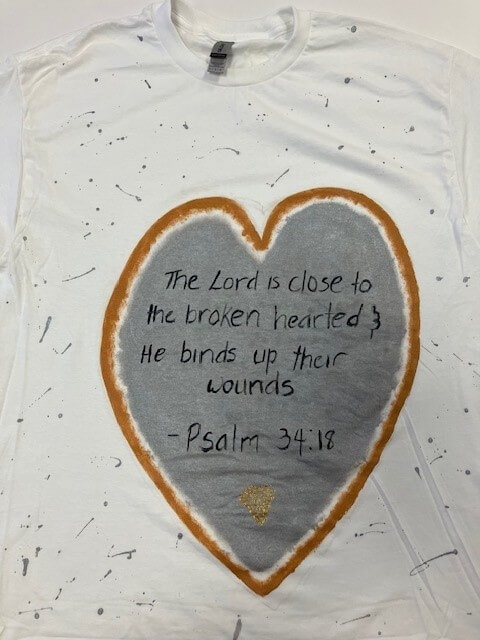 The Lord is close to
the broken hearted &
He binds up their
wounds
- Psalm 34:18